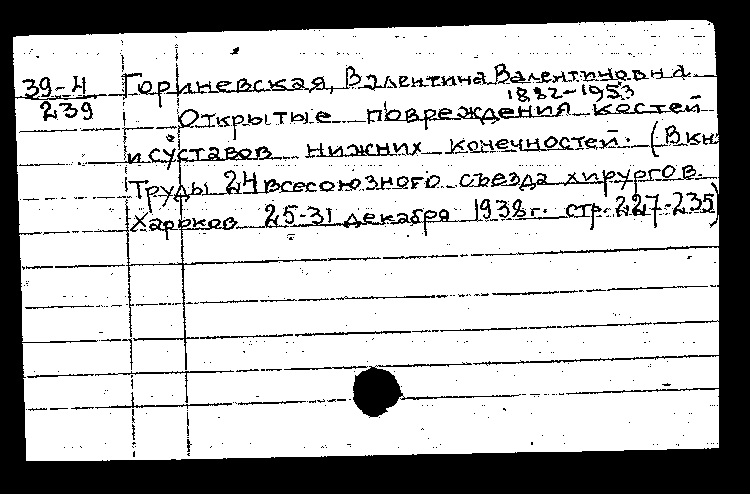 39-4 Гориневская, Валентина Валентиновна
1882-1953
239 Открытые повреждения костей
и суставов нижних конечностей. (В кн:
Труды 24 всесоюзного съезда хирургов.
Харьков 25-31 декабря 1938г. стр. 227-235)